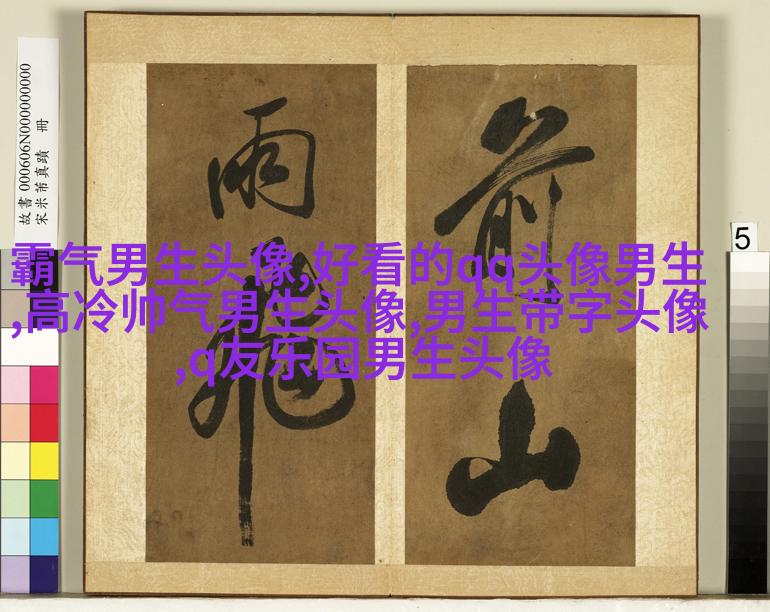 故書 000606N000000000
宋米芾真蹟 冊
前山
雨飛
5
霸气男生头像,好看的qq头像男生
,高冷帅气男生头像,男生带字头像
,q友乐园男生头像